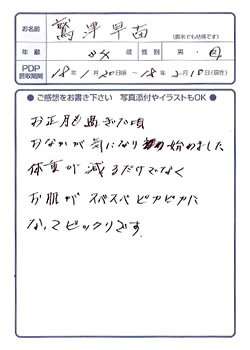 お名前 鷲津早苗 (匿名でも結構です)
年齢 歳 性別 男・女
PDP摂取期間 18年1月20日～18年2月15日(現在)
●ご感想をお書き下さい 写真添付やイラストもOK●
お正月も過ぎた頃
おなかが気になり始めました
体重が減るだけでなく
お肌がスベスベピカピカに
なってビックリです